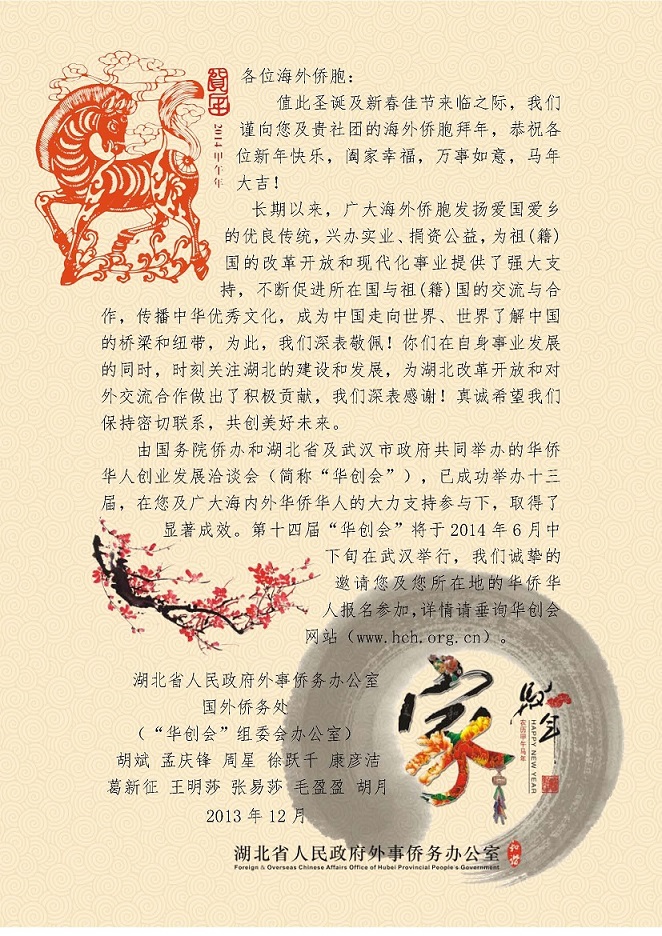 各位海外侨胞：
值此圣诞及新春佳节来临之际，我们
谨向您及贵社团的海外侨胞拜年，恭祝各
位新年快乐，阖家幸福，万事如意，马年
大吉！
长期以来，广大海外侨胞发扬爱国爱乡
的优良传统，兴办实业、捐资公益，为祖(籍)
国的改革开放和现代化事业提供了强大支
持，不断促进所在国与祖(籍)国的交流与合
作，传播中华优秀文化，成为中国走向世界、世界了解中国
的桥梁和纽带，为此，我们深表敬佩！你们在自身事业发展
的同时，时刻关注湖北的建设和发展，为湖北改革开放和对
外交流合作做出了积极贡献，我们深表感谢！真诚希望我们
保持密切联系，共创美好未来。
由国务院侨办和湖北省及武汉市政府共同举办的华侨
华人创业发展洽谈会（简称“华创会”），已成功举办十三
届，在您及广大海内外华侨华人的大力支持参与下，取得了
显著成效。第十四届“华创会”将于2014年6月中
下旬在武汉举行，我们诚挚的
邀请您及您所在地的华侨华
人报名参加,详情请垂询华创会
网站（www.hch.org.cn）。
湖北省人民政府外事侨务办公室
国外侨务处
（“华创会”组委会办公室）
胡斌 孟庆锋 周星 徐跃千 康彦洁
葛新征 王明莎 张易莎 毛盈盈 胡月
2013年12月
賀年
2014 甲午年
家
HAPPY NEW YEAR
农历甲午马年
湖北省人民政府外事侨务办公室
Foreign & Overseas Chinese Affairs Office of Hubei Provincial People's Government
和谐